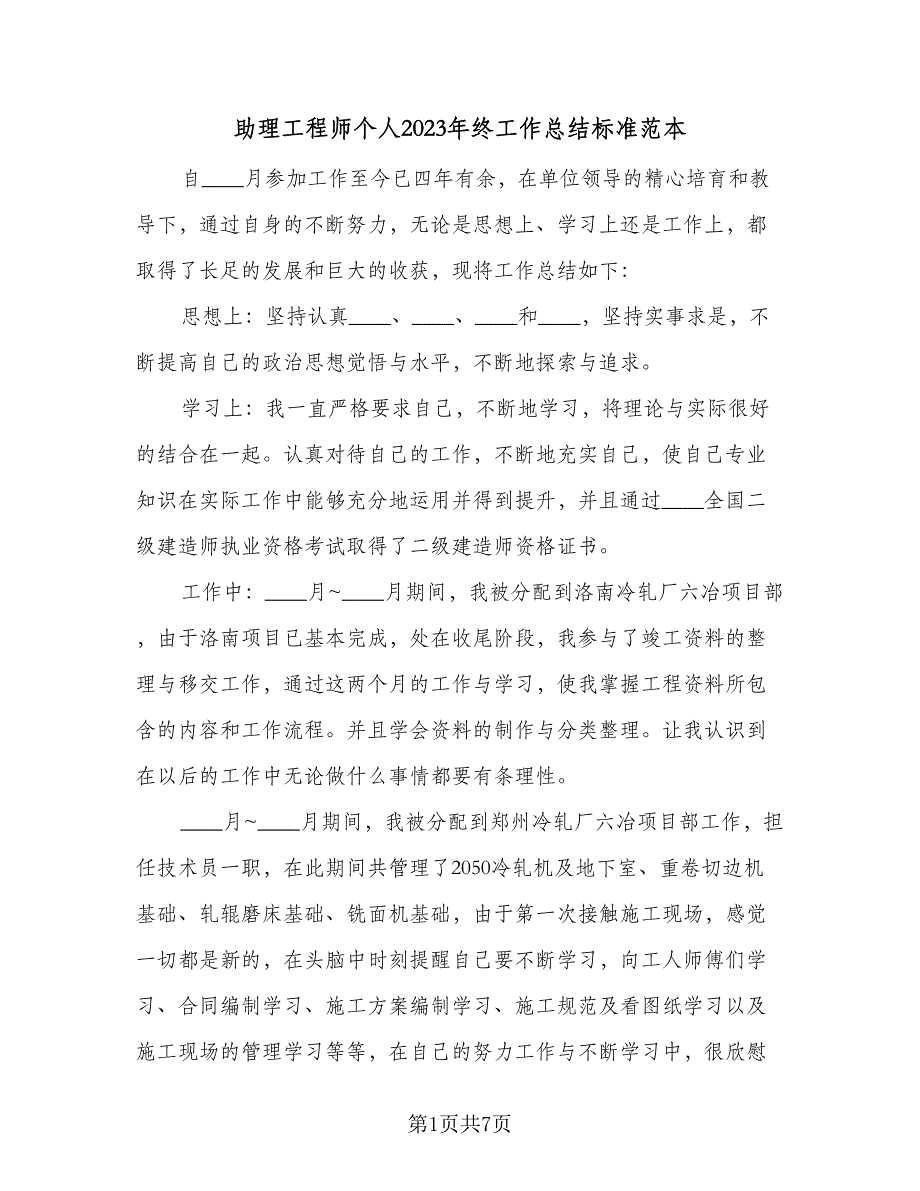 助理工程师个人2023年终工作总结标准范本
自____月参加工作至今已四年有余，在单位领导的精心培育和教
导下，通过自身的不断努力，无论是思想上、学习上还是工作上，都
取得了长足的发展和巨大的收获，现将工作总结如下：
思想上：坚持认真____、____、____和____，坚持实事求是，不
断提高自己的政治思想觉悟与水平，不断地探索与追求。
学习上：我一直严格要求自己，不断地学习，将理论与实际很好
的结合在一起。认真对待自己的工作，不断地充实自己，使自己专业
知识在实际工作中能够充分地运用并得到提升，并且通过____全国二
级建造师执业资格考试取得了二级建造师资格证书。
工作中：____月~____月期间，我被分配到洛南冷轧厂六冶项目部
，由于洛南项目已基本完成，处在收尾阶段，我参与了竣工资料的整
理与移交工作，通过这两个月的工作与学习，使我掌握工程资料所包
含的内容和工作流程。并且学会资料的制作与分类整理。让我认识到
在以后的工作中无论做什么事情都要有条理性。
____月~____月期间，我被分配到郑州冷轧厂六冶项目部工作，担
任技术员一职，在此期间共管理了2050冷轧机及地下室、重卷切边机
基础、轧辊磨床基础、铣面机基础，由于第一次接触施工现场，感觉
一切都是新的，在头脑中时刻提醒自己要不断学习，向工人师傅们学
习、合同编制学习、施工方案编制学习、施工规范及看图纸学习以及
施工现场的管理学习等等，在自己的努力工作与不断学习中，很欣慰
第1页共7页